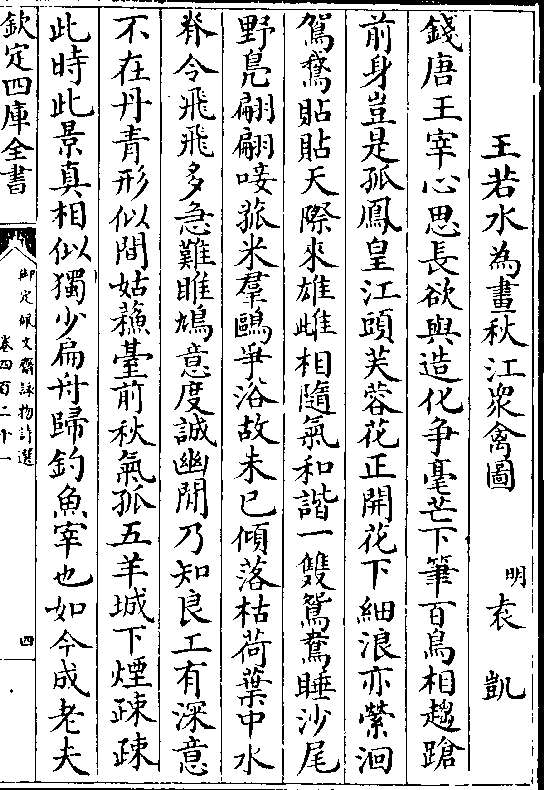 王若水為畫秋江衆禽圖　明　袁凱
錢唐王宰心思長欲與造化争毫芒下筆百鳥相趨蹌
前身豈是孤鳳皇江頭芙蓉花正開花下細浪亦縈洄
鴐鵞貼貼天際來雄雌相隨氣和諧一雙鴛鴦睡沙尾
野鳬翩翩唼菰米羣鷗爭浴故未已傾落枯荷葉中水
脊令飛飛多急難雎鳩意度誠幽閒乃知良工有深意
不在丹青形似間姑蘓臺前秋氣孤五羊城下煙疎疎
此時此景真相似獨少扁舟歸釣魚宰也如今成老夫
欽定四庫全書
御定佩文齋詠物詩選
卷四百二十一
四